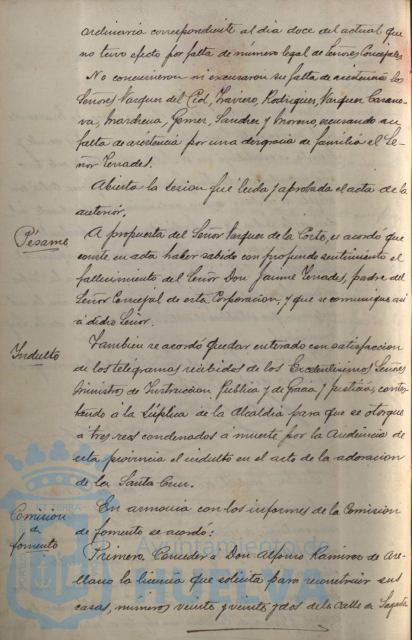 ordinaria correspondiente al dia doce del actual que
no tuvo efecto por falta de número legal de Señores Concejales
No concurrieron ni excusaron su falta de asistencia los
Señores Vazquez del Cid, Traviero, Rodriguez, Vazquez Casano-
va, Marchena, Gomez, Sanchez y Moreno, excusando su
falta de asistencia por una desgracia de familia el Se-
ñor Terrades.
Abierta la sesion fué leida y aprobada el acta de la
anterior.
Pésame
A propuesta del Señor Vazquez de la Corte, se acordó que
conste en acta haber sabido con profundo sentimiento el
fallecimiento del Señor Don Jaime Terrades, padre del
Señor Concejal de esta Corporacion, y que se comunique asi
á dicho Señor.
Indulto
Tambien se acordó quedar enterado con satisfaccion
de los telégramas recibidos de los Excelentisimos Señores
Ministros de Instruccion Publica y de Gracia y Justicia, contes-
tando á la súplica de la Alcaldia para que se otorgue
á tres reos condenados á muerte por la Audiencia de
esta provincia el indulto en el acto de la adoracion
de la Santa Cruz.
Comision
de
fomento
En armonia con los informes de la Comision
de fomento se acordó:
Primero. Conceder á Don Alfonso Ramirez de Are-
llano la licencia que solicita para reconstruir sus
casas, números veinte y veinte y dos de la calle de Sagasta
Ayuntamiento de
HUELVA